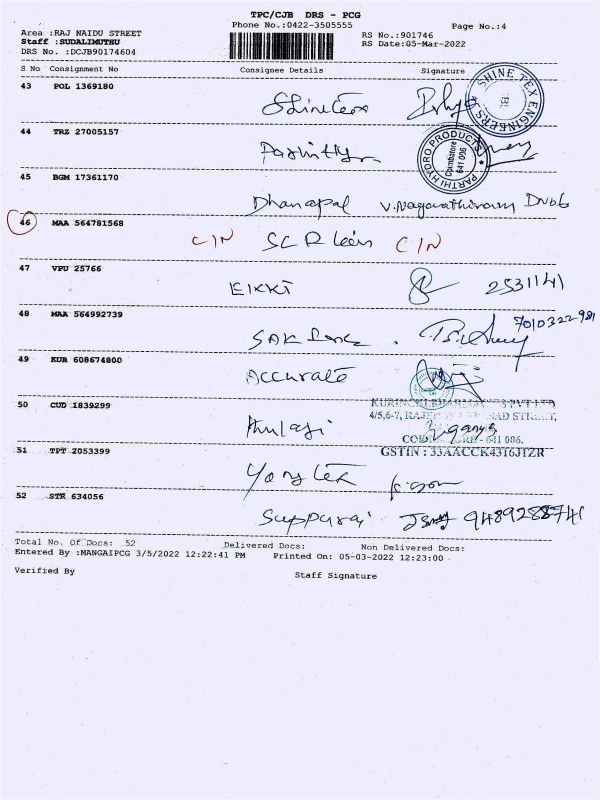 TPC/CJB DRS - PCG
Phone No.:0422-3505555
Page No.:4
Area :RAJ NAIDU STREET
RS No.:901746
Staff :SUDALIMUTHU
RS Date:05-Mar-2022
DRS No. :DCJB90174604
S No Consignment No Consignee Details Signature
43 POL 1369180
Shinetex
SHINE TEX ENGINEERS
44 TRZ 27005157
PARTHI HYDRO PRODUCTS
Coimbatore
641 006
45 BGM 17361170
Dhanapal V.Nagarathinam
46 MAA 564781568
C/N C/N
47 VPU 25766
EIKKI 2531141
48 MAA 564992739
7010322981
49 KUR 608674800
Accurate
50 CUD 1839299
4/5,6-7,
641 006.
GSTIN : 33AACCK4316J1ZR
51 TPT 2053399
Yongtex
52 STR 634056
9489288741
Total No. Of Docs: 52 Delivered Docs: Non Delivered Docs:
Entered By :MANGAIPCG 3/5/2022 12:22:41 PM Printed On: 05-03-2022 12:23:00
Verified By
Staff Signature